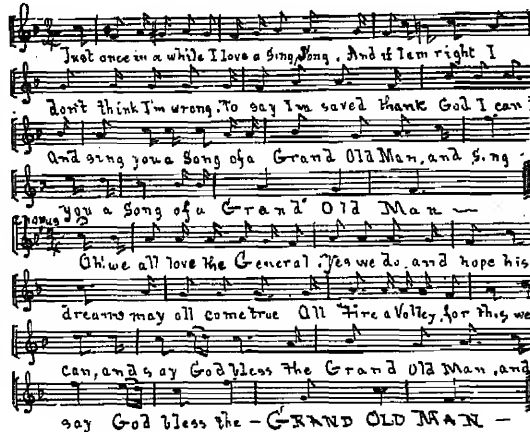 Just once in a while I love a Sing Song. And if I em right I
don't think I'm wrong. To say I'm saved thank God I can
And sing you a Song of a Grand Old Man, and Sing
you a Song of a Grand Old Man —
Chorus
Oh! we all love the General. Yes we do, and hope his
dreams may all come true All Fire a Volley, for this, we
can, and say God bless the Grand Old Man, and
say God bless the — GRAND OLD MAN —